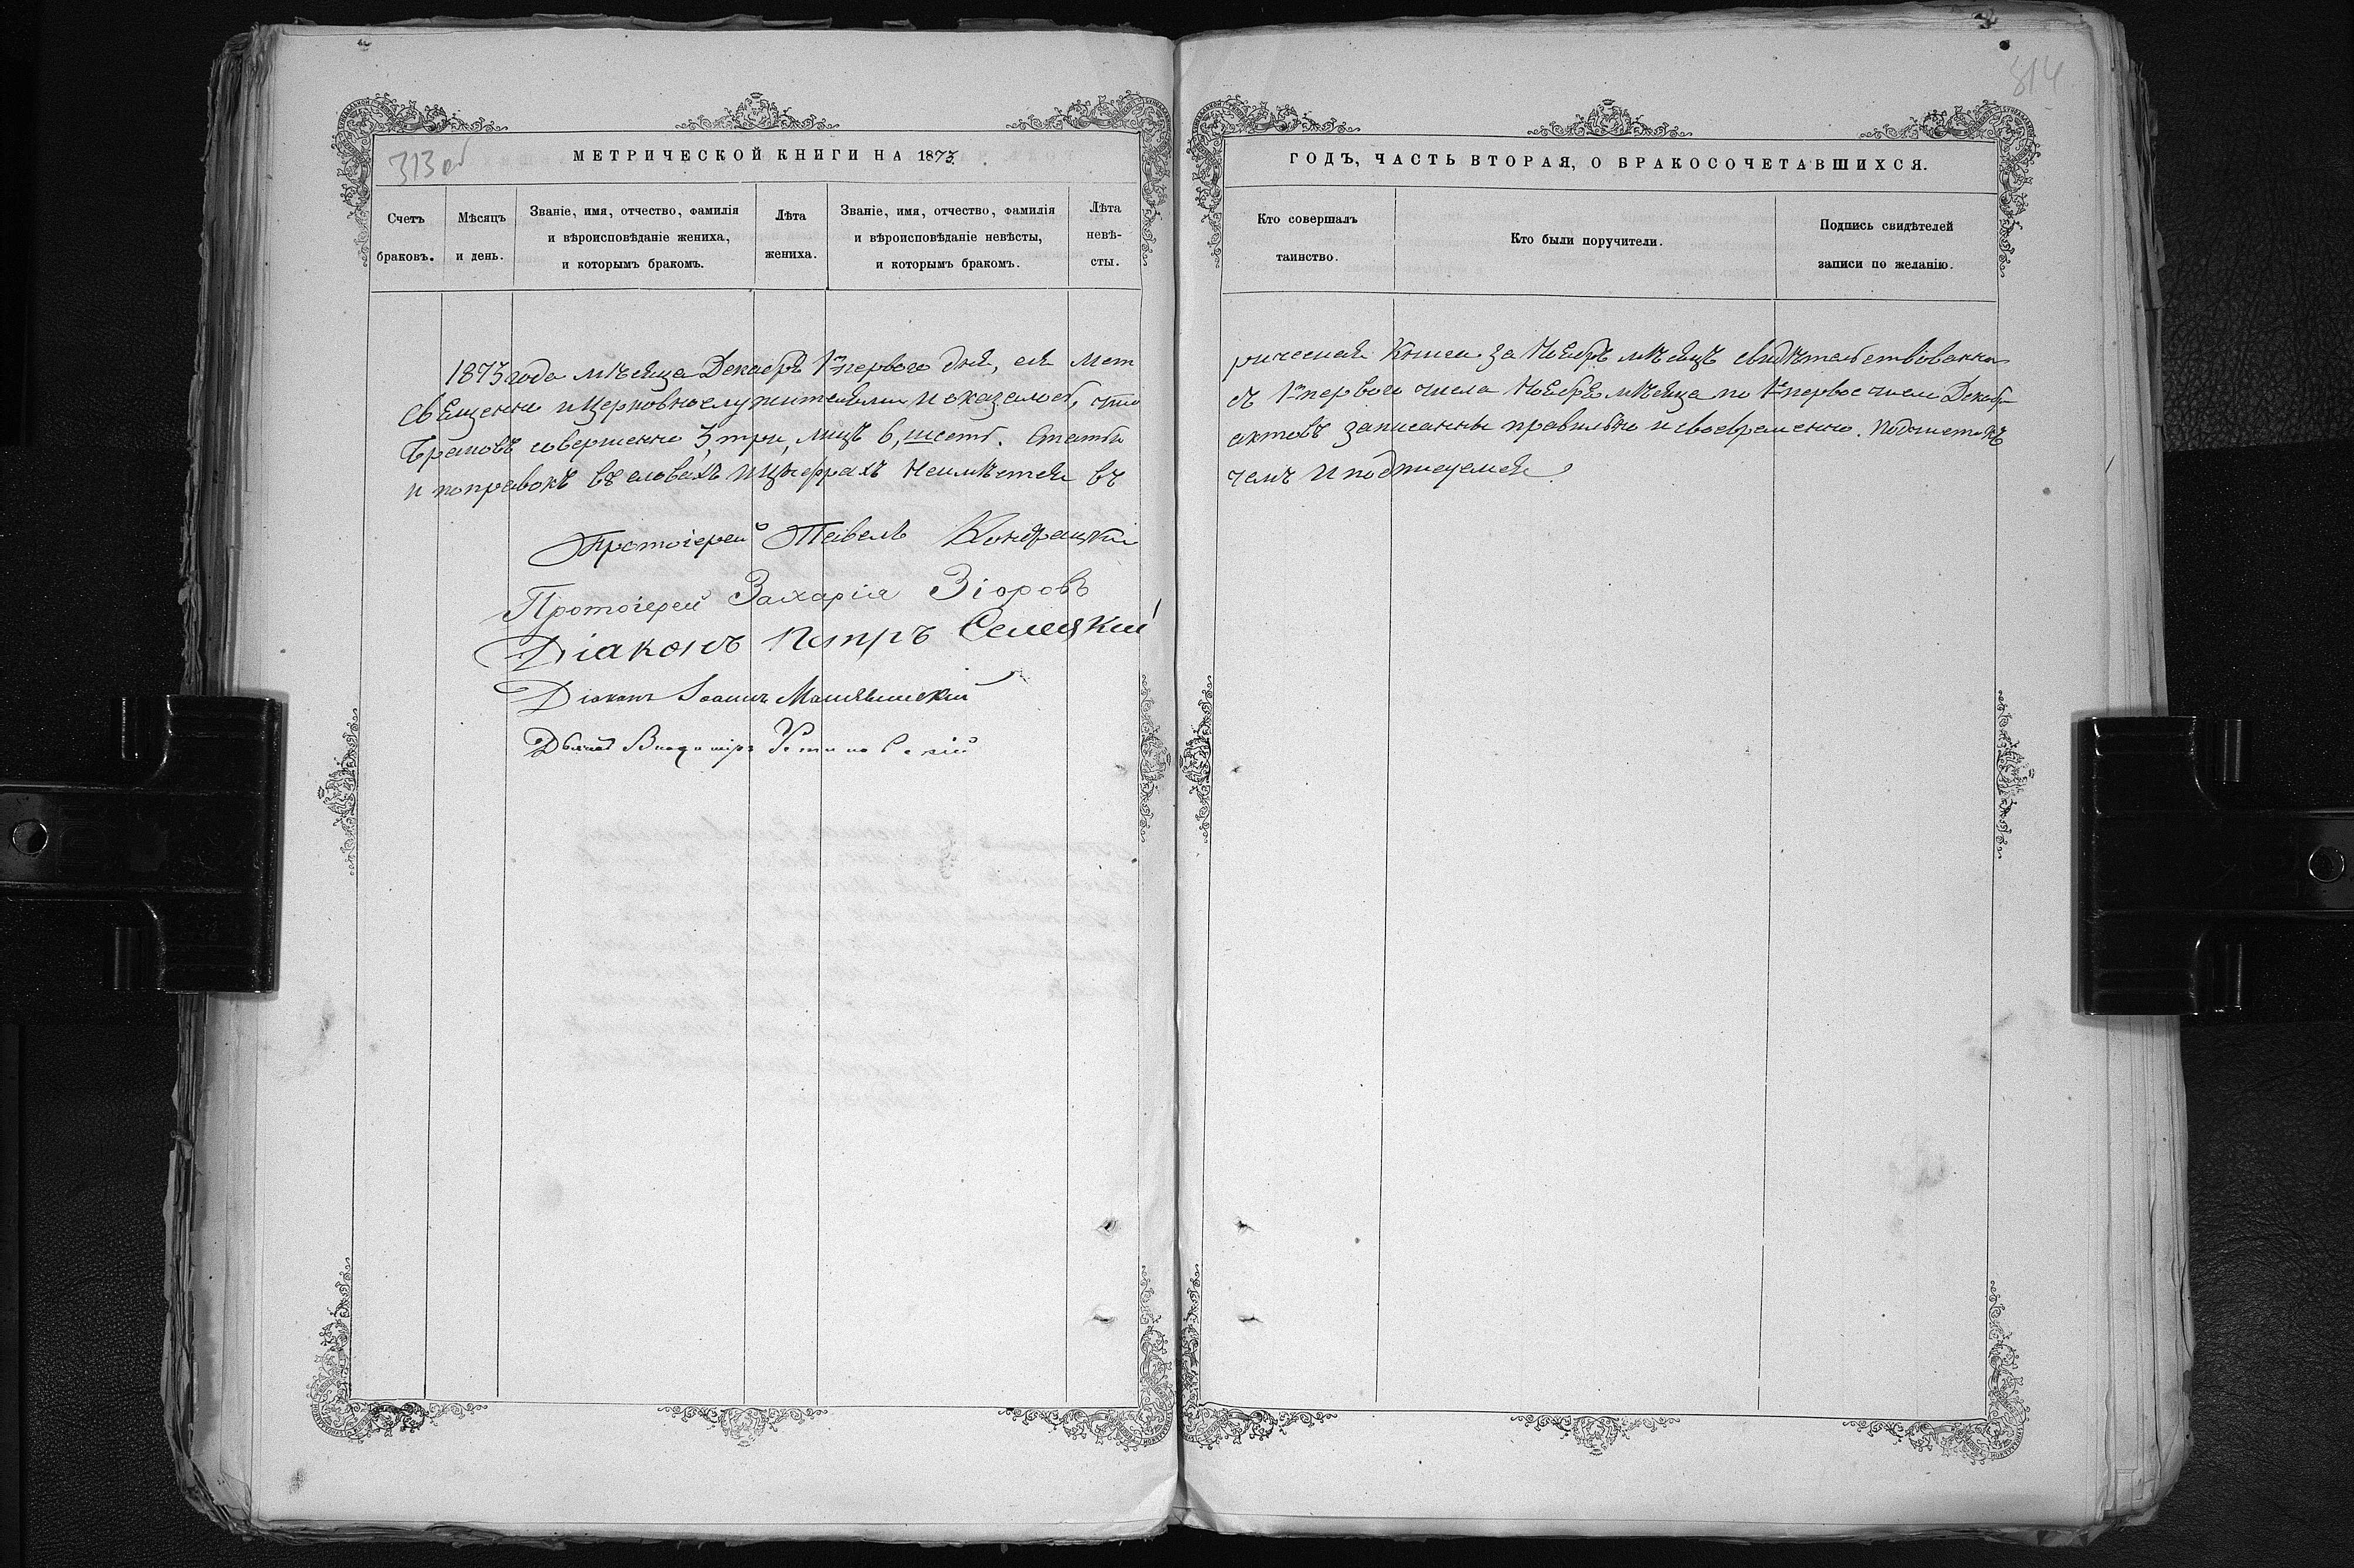 313 об
МЕТРИЧЕСКОЙ КНИГИ НА 1873
Счетъ браковъ.
Мѣсяцъ и день.
Званіе, имя, отчество, фамилія и вѣроисповѣданіе жениха, и которымъ бракомъ.
Лѣта жениха.
Званіе, имя, отчество, фамилія и вѣроисповѣданіе невѣсты, и которымъ бракомъ.
Лѣта невѣ-сты.
1873 года мѣсяца Декабря 1го первого дня, сія Мет
священно и церковнослужителями и оказалось, что
браковъ совершенно 3, три, лицъ 6, шесть. Статьи
и поправокъ въ словахъ и цыфрахъ неимѣется въ
Протоіерей Павелъ Кондрацкій
Протоіерей Захарія Зіоровъ
Діаконъ Петръ Селецкій
Діаконъ Іоаннъ
Дьячекъ Владиміръ
314
ГОДЪ, ЧАСТЬ ВТОРАЯ, О БРАКОСОЧЕТАВШИХСЯ.
Кто совершалъ таинство.
Кто были поручители.
Подпись свидѣтелей записи по желанію.
рическая Книга за Ноябрь мѣсяцъ свидѣтельствованна
съ 1го первого числа Ноября мѣсяца по 1е первое число Декабр
актовъ записанны правильно и своевременно. Подчистокъ
чемъ и подписуемся.